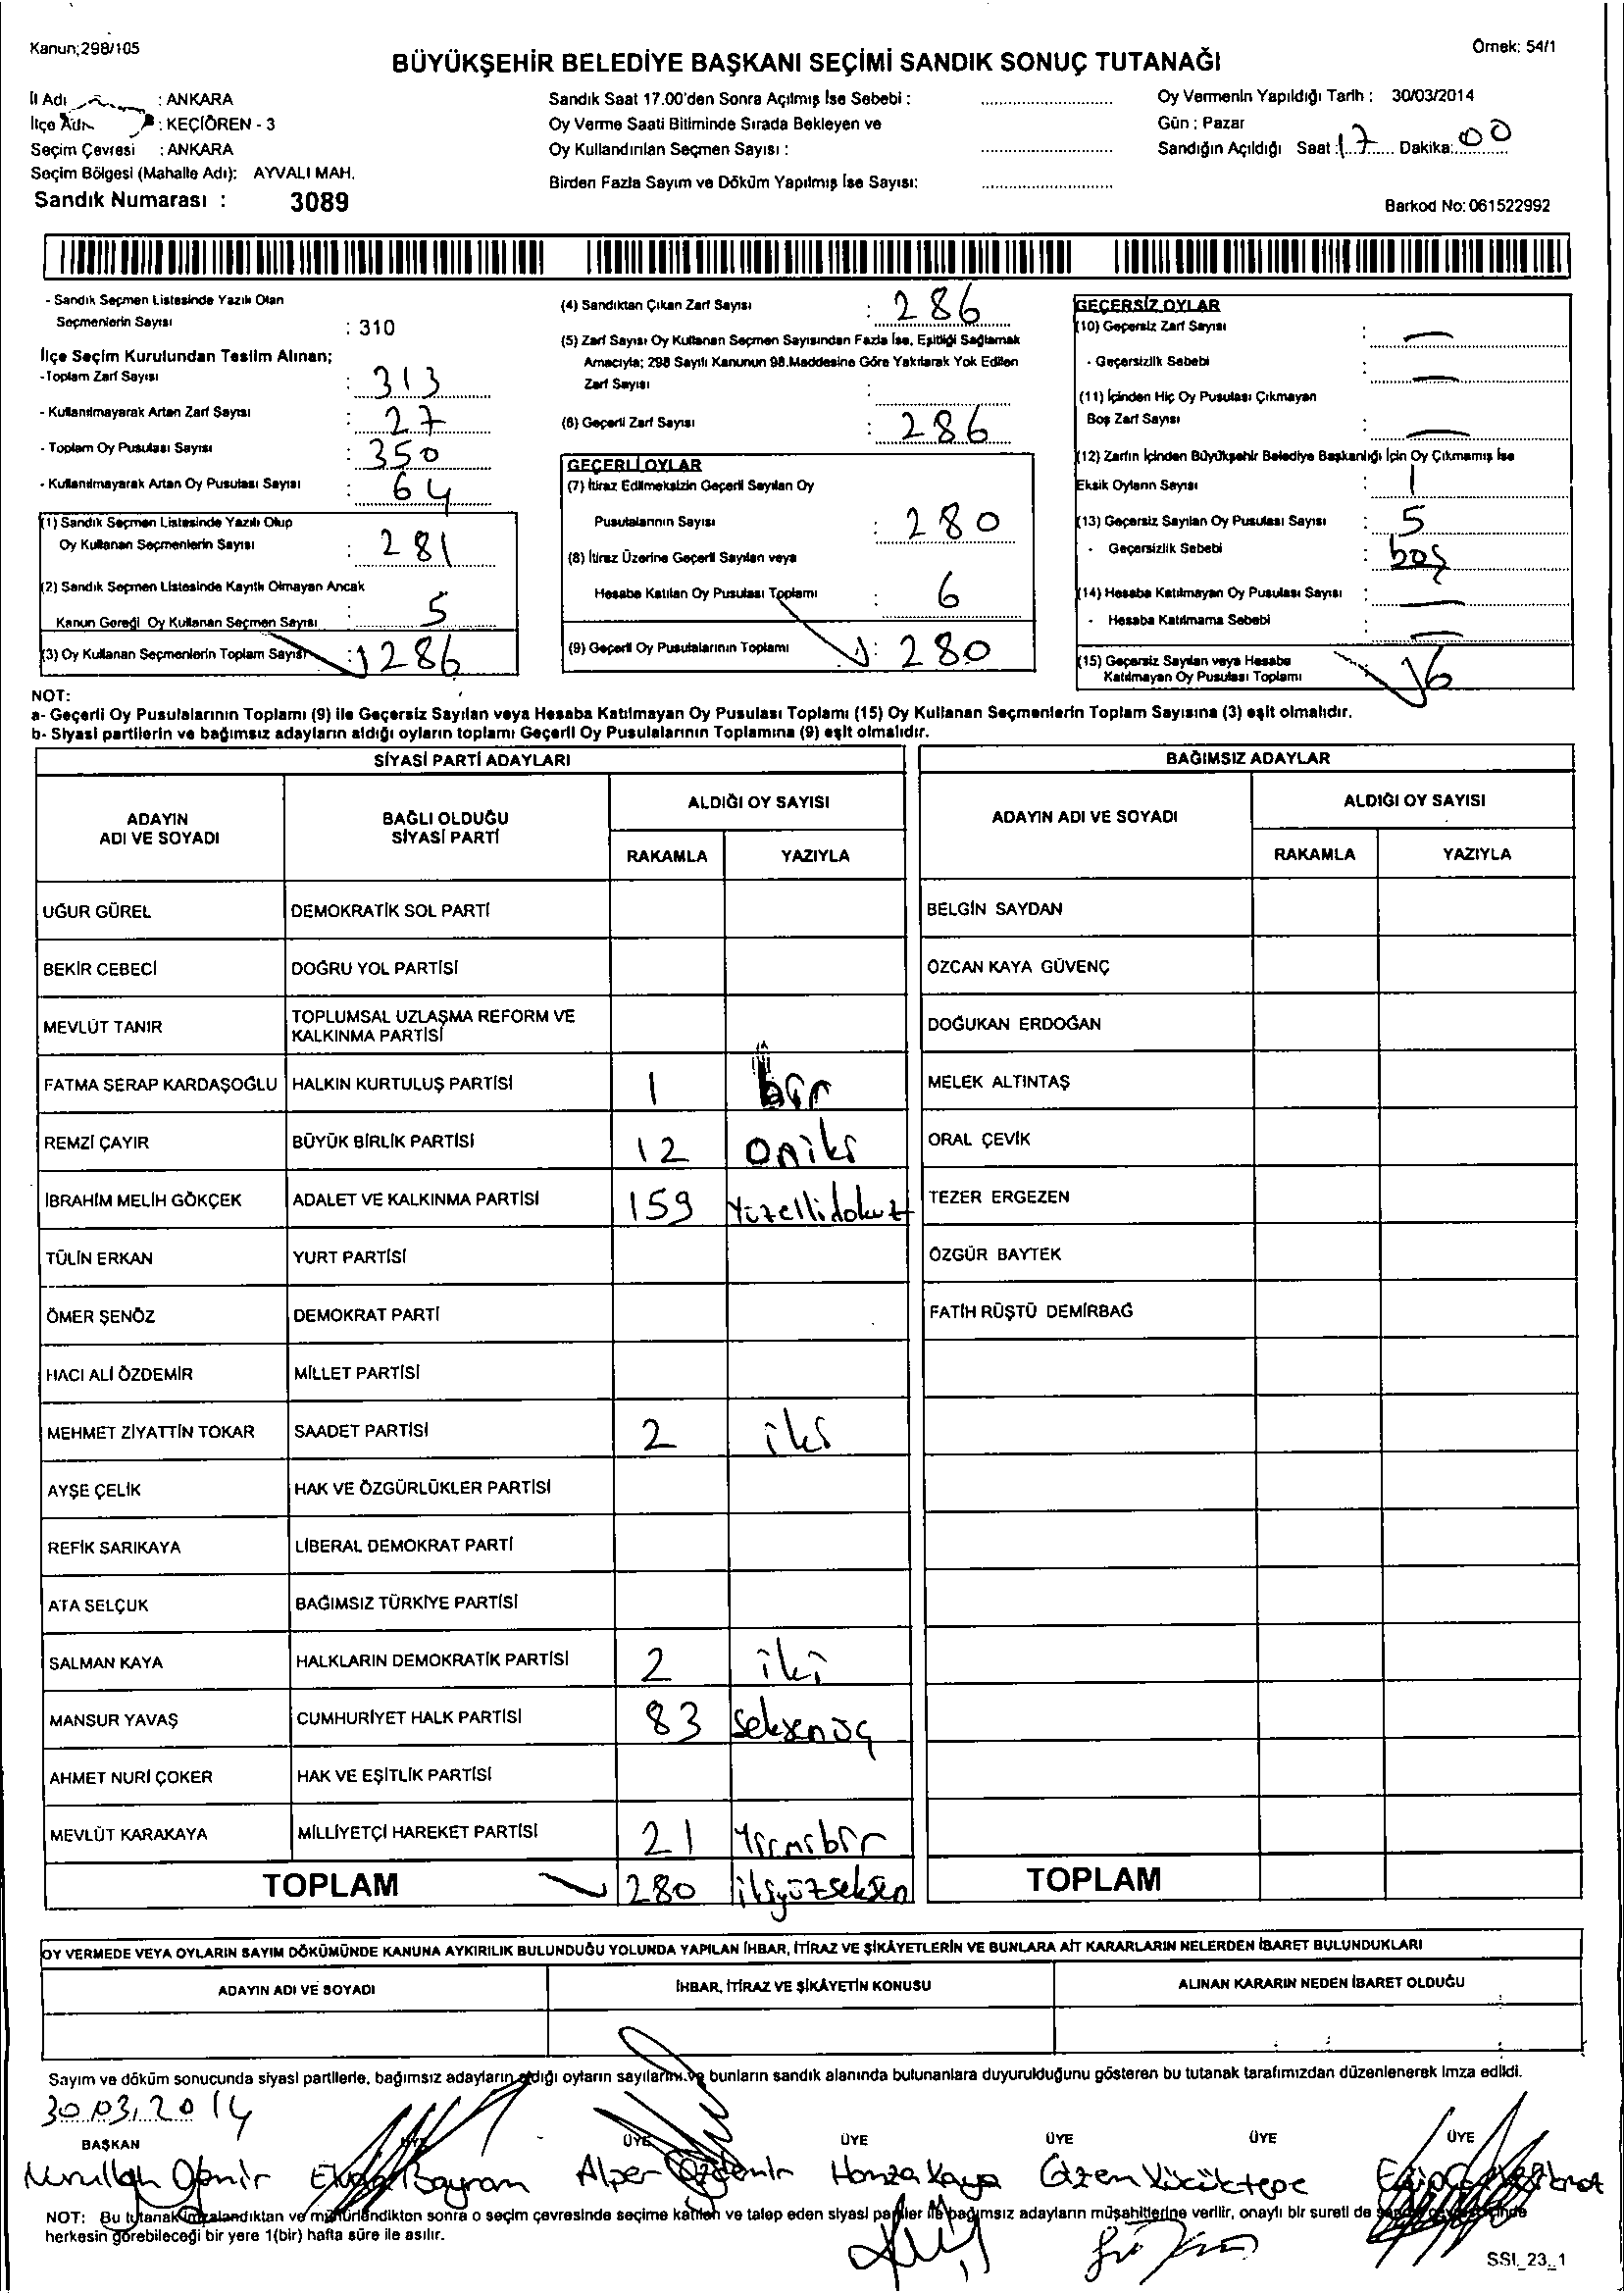 Kanun;298/105
Örnek: 54/1
BÜYÜKŞEHİR BELEDİYE BAŞKANI SEÇİMİ SANDIK SONUÇ TUTANAĞI
İl Adı : ANKARA
İlçe Adı : KEÇİÖREN - 3
Seçim Çevresi : ANKARA
Seçim Bölgesi (Mahalle Adı): AYVALI MAH.
Sandık Numarası : 3089
Sandık Saat 17.00'den Sonra Açılmış İse Sebebi :
Oy Verme Saati Bitiminde Sırada Bekleyen ve
Oy Kullandırılan Seçmen Sayısı :
Birden Fazla Sayım ve Döküm Yapılmış İse Sayısı:
Oy Vermenin Yapıldığı Tarih : 30/03/2014
Gün : Pazar
Sandığın Açıldığı Saat : 17 Dakika: 00
Barkod No: 061522992
- Sandık Seçmen Listesinde Yazılı Olan
Seçmenlerin Sayısı : 310
İlçe Seçim Kurulundan Teslim Alınan;
-Toplam Zarf Sayısı : 313
- Kullanılmayarak Artan Zarf Sayısı : 27
- Toplam Oy Pusulası Sayısı : 350
- Kullanılmayarak Artan Oy Pusulası Sayısı : 64
(1) Sandık Seçmen Listesinde Yazılı Olup
Oy Kullanan Seçmenlerin Sayısı : 281
(2) Sandık Seçmen Listesinde Kayıtlı Olmayan Ancak
Kanun Gereği Oy Kullanan Seçmen Sayısı : 5
(3) Oy Kullanan Seçmenlerin Toplam Sayısı : 286
(4) Sandıktan Çıkan Zarf Sayısı : 286
(5) Zarf Sayısı Oy Kullanan Seçmen Sayısından Fazla İse, Eşitliği Sağlamak
Amacıyla; 298 Sayılı Kanunun 98.Maddesine Göre Yakılarak Yok Edilen
Zarf Sayısı :
(6) Geçerli Zarf Sayısı : 286
GEÇERLİ OYLAR
(7) İtiraz Edilmeksizin Geçerli Sayılan Oy
Pusulalarının Sayısı : 280
(8) İtiraz Üzerine Geçerli Sayılan veya
Hesaba Katılan Oy Pusulası Toplamı : 6
(9) Geçerli Oy Pusulalarının Toplamı : 280
GEÇERSİZ OYLAR
(10) Geçersiz Zarf Sayısı : —
- Geçersizlik Sebebi : —
(11) İçinden Hiç Oy Pusulası Çıkmayan
Boş Zarf Sayısı : —
(12) Zarfın İçinden Büyükşehir Belediye Başkanlığı İçin Oy Çıkmamış İse
Eksik Oyların Sayısı : 1
(13) Geçersiz Sayılan Oy Pusulası Sayısı : 5
- Geçersizlik Sebebi : boş
(14) Hesaba Katılmayan Oy Pusulası Sayısı : —
- Hesaba Katılmama Sebebi : —
(15) Geçersiz Sayılan veya Hesaba
Katılmayan Oy Pusulası Toplamı 6
NOT:
a- Geçerli Oy Pusulalarının Toplamı (9) ile Geçersiz Sayılan veya Hesaba Katılmayan Oy Pusulası Toplamı (15) Oy Kullanan Seçmenlerin Toplam Sayısına (3) eşit olmalıdır.
b- Siyasi partilerin ve bağımsız adayların aldığı oyların toplamı Geçerli Oy Pusulalarının Toplamına (9) eşit olmalıdır.
SİYASİ PARTİ ADAYLARI
ADAYIN ADI VE SOYADI
BAĞLI OLDUĞU SİYASİ PARTİ
ALDIĞI OY SAYISI
RAKAMLA YAZIYLA
UĞUR GÜREL DEMOKRATİK SOL PARTİ
BEKİR CEBECİ DOĞRU YOL PARTİSİ
MEVLÜT TANIR TOPLUMSAL UZLAŞMA REFORM VE
KALKINMA PARTİSİ
FATMA SERAP KARDAŞOĞLU HALKIN KURTULUŞ PARTİSİ 1 bir
REMZİ ÇAYIR BÜYÜK BİRLİK PARTİSİ 12 oniki
İBRAHİM MELİH GÖKÇEK ADALET VE KALKINMA PARTİSİ 159 Yüzellidokuz
TÜLİN ERKAN YURT PARTİSİ
ÖMER ŞENÖZ DEMOKRAT PARTİ
HACI ALİ ÖZDEMİR MİLLET PARTİSİ
MEHMET ZİYATTİN TOKAR SAADET PARTİSİ 2 iki
AYŞE ÇELİK HAK VE ÖZGÜRLÜKLER PARTİSİ
REFİK SARIKAYA LİBERAL DEMOKRAT PARTİ
ATA SELÇUK BAĞIMSIZ TÜRKİYE PARTİSİ
SALMAN KAYA HALKLARIN DEMOKRATİK PARTİSİ 2 iki
MANSUR YAVAŞ CUMHURİYET HALK PARTİSİ 83 Seksenüç
AHMET NURİ ÇOKER HAK VE EŞİTLİK PARTİSİ
MEVLÜT KARAKAYA MİLLİYETÇİ HAREKET PARTİSİ 21 Yirmibir
TOPLAM 280 ikiyüzseksen
BAĞIMSIZ ADAYLAR
ADAYIN ADI VE SOYADI
ALDIĞI OY SAYISI
RAKAMLA YAZIYLA
BELGİN SAYDAN
ÖZCAN KAYA GÜVENÇ
DOĞUKAN ERDOĞAN
MELEK ALTINTAŞ
ORAL ÇEVİK
TEZER ERGEZEN
ÖZGÜR BAYTEK
FATİH RÜŞTÜ DEMİRBAĞ
TOPLAM
OY VERMEDE VEYA OYLARIN SAYIM DÖKÜMÜNDE KANUNA AYKIRILIK BULUNDUĞU YOLUNDA YAPILAN İHBAR, İTİRAZ VE ŞİKÂYETLERİN VE BUNLARA AİT KARARLARIN NELERDEN İBARET BULUNDUKLARI
ADAYIN ADI VE SOYADI İHBAR, İTİRAZ VE ŞİKÂYETİN KONUSU ALINAN KARARIN NEDEN İBARET OLDUĞU
Sayım ve döküm sonucunda siyasi partilerle, bağımsız adayların aldığı oyların sayılarını ve bunların sandık alanında bulunanlara duyurulduğunu gösteren bu tutanak tarafımızdan düzenlenerek imza edildi.
30.03.2014
BAŞKAN ÜYE ÜYE ÜYE ÜYE ÜYE ÜYE
Nurullah Bayram Alper Özdemir Hamza Kaya Gizem Küçüktepe
NOT: Bu tutanak imzalandıktan ve mühürlendikten sonra o seçim çevresinde seçime katılan ve talep eden siyasi partiler ile bağımsız adayların müşahitlerine verilir, onaylı bir sureti de
herkesin görebileceği bir yere 1(bir) hafta süre ile asılır.
SSI_23_1